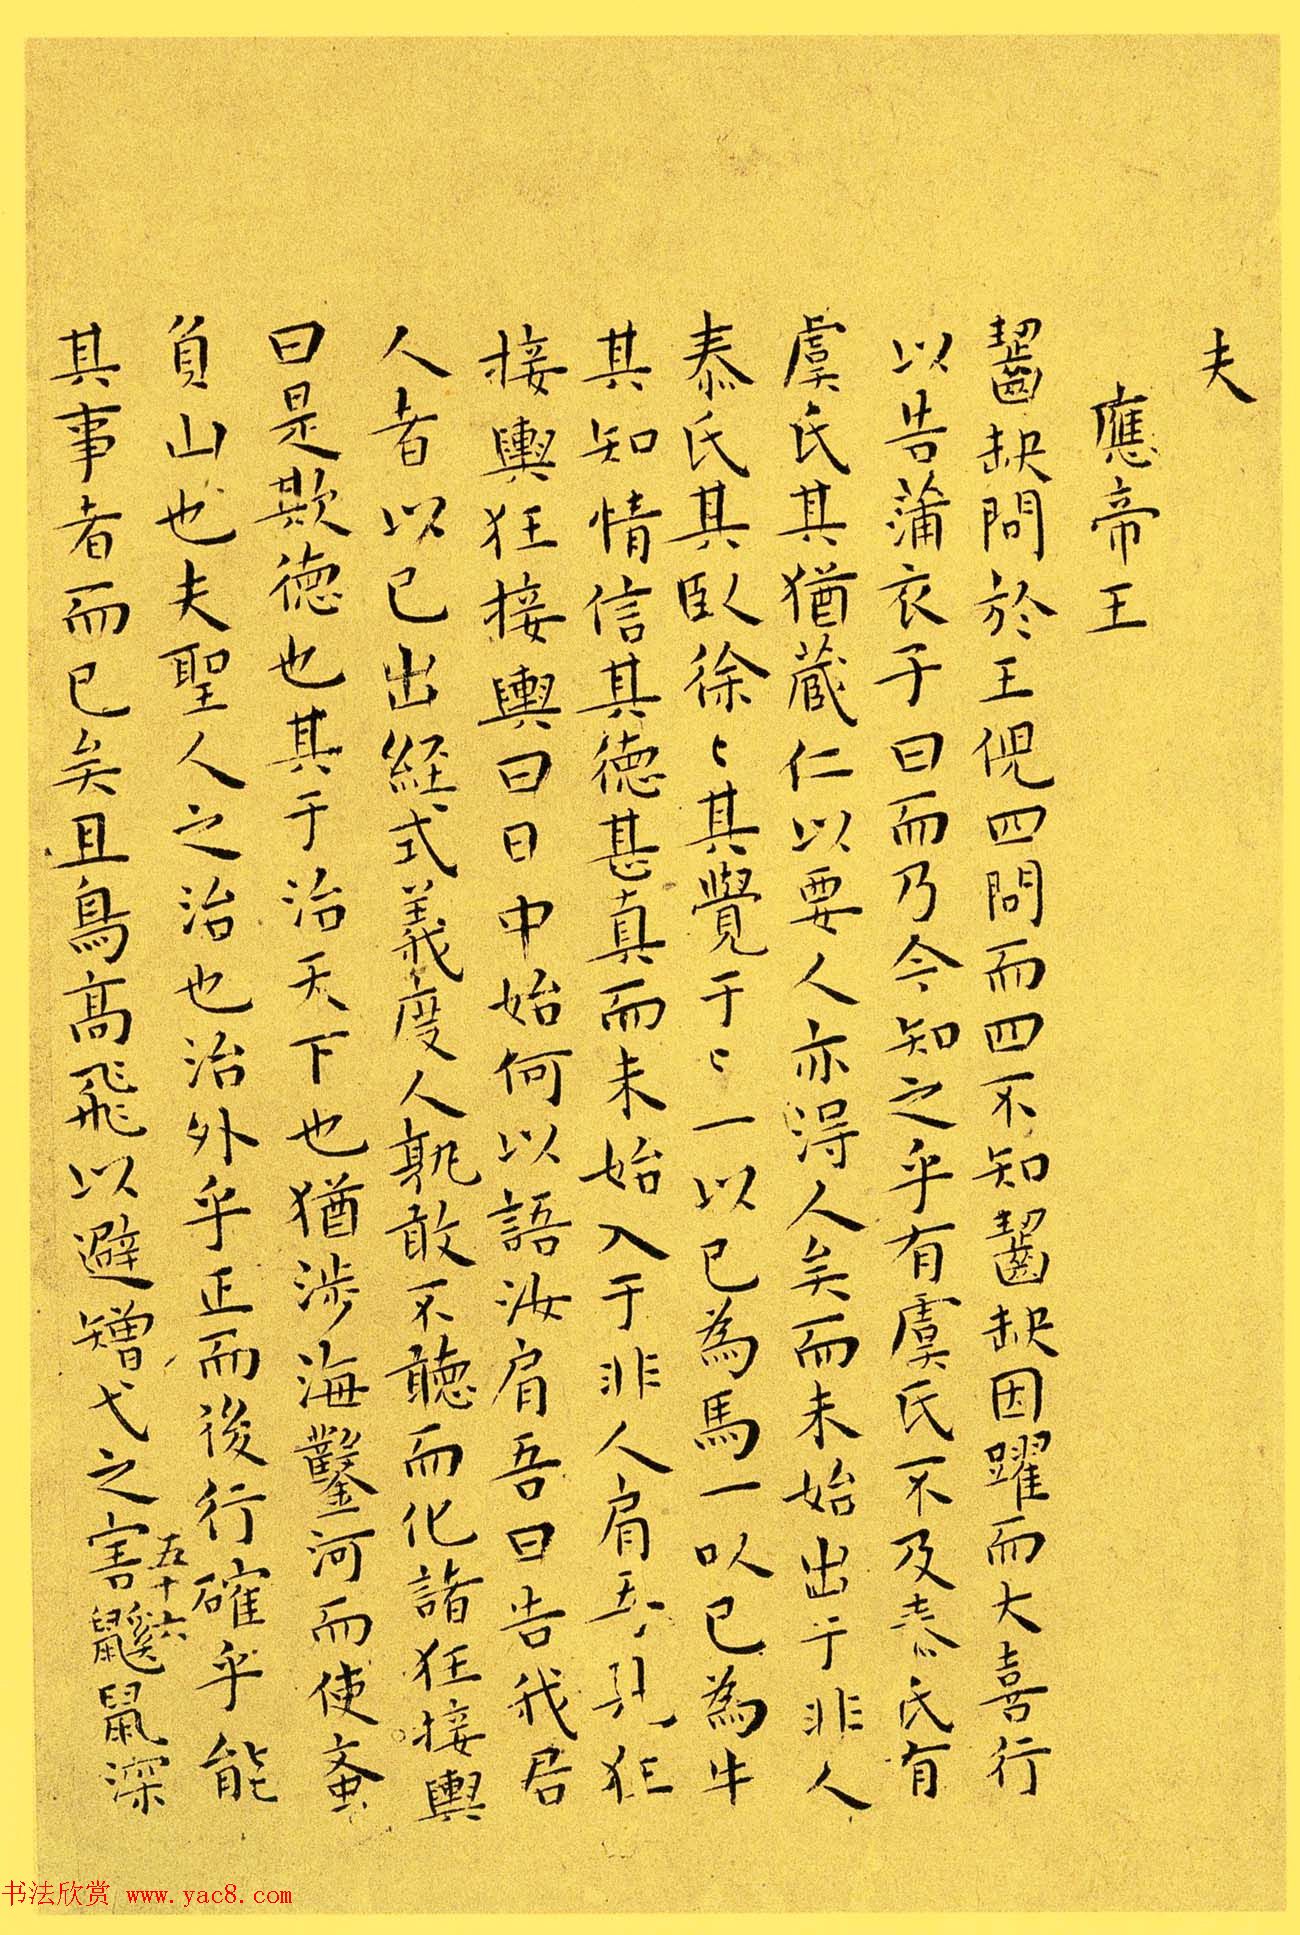 夫
應帝王
齧缺問於王倪四問而四不知齧缺因躍而大喜行
以告蒲衣子曰而乃今知之乎有虞氏不及泰氏有
虞氏其猶藏仁以要人亦得人矣而未始出于非人
泰氏其臥徐〻其覺于〻一以已為馬一以已為牛
其知情信其德甚真而未始入于非人肩吾見狂
接輿狂接輿曰日中始何以語汝肩吾曰告我君
人者以已出經式義度人孰敢不聽而化諸狂接輿
曰是欺德也其于治天下也猶涉海鑿河而使蚉
負山也夫聖人之治也治外乎正而後行確乎能
五十六
其事者而已矣且鳥高飛以避矰弋之害鼷鼠深
书法欣赏 www.yac8.com